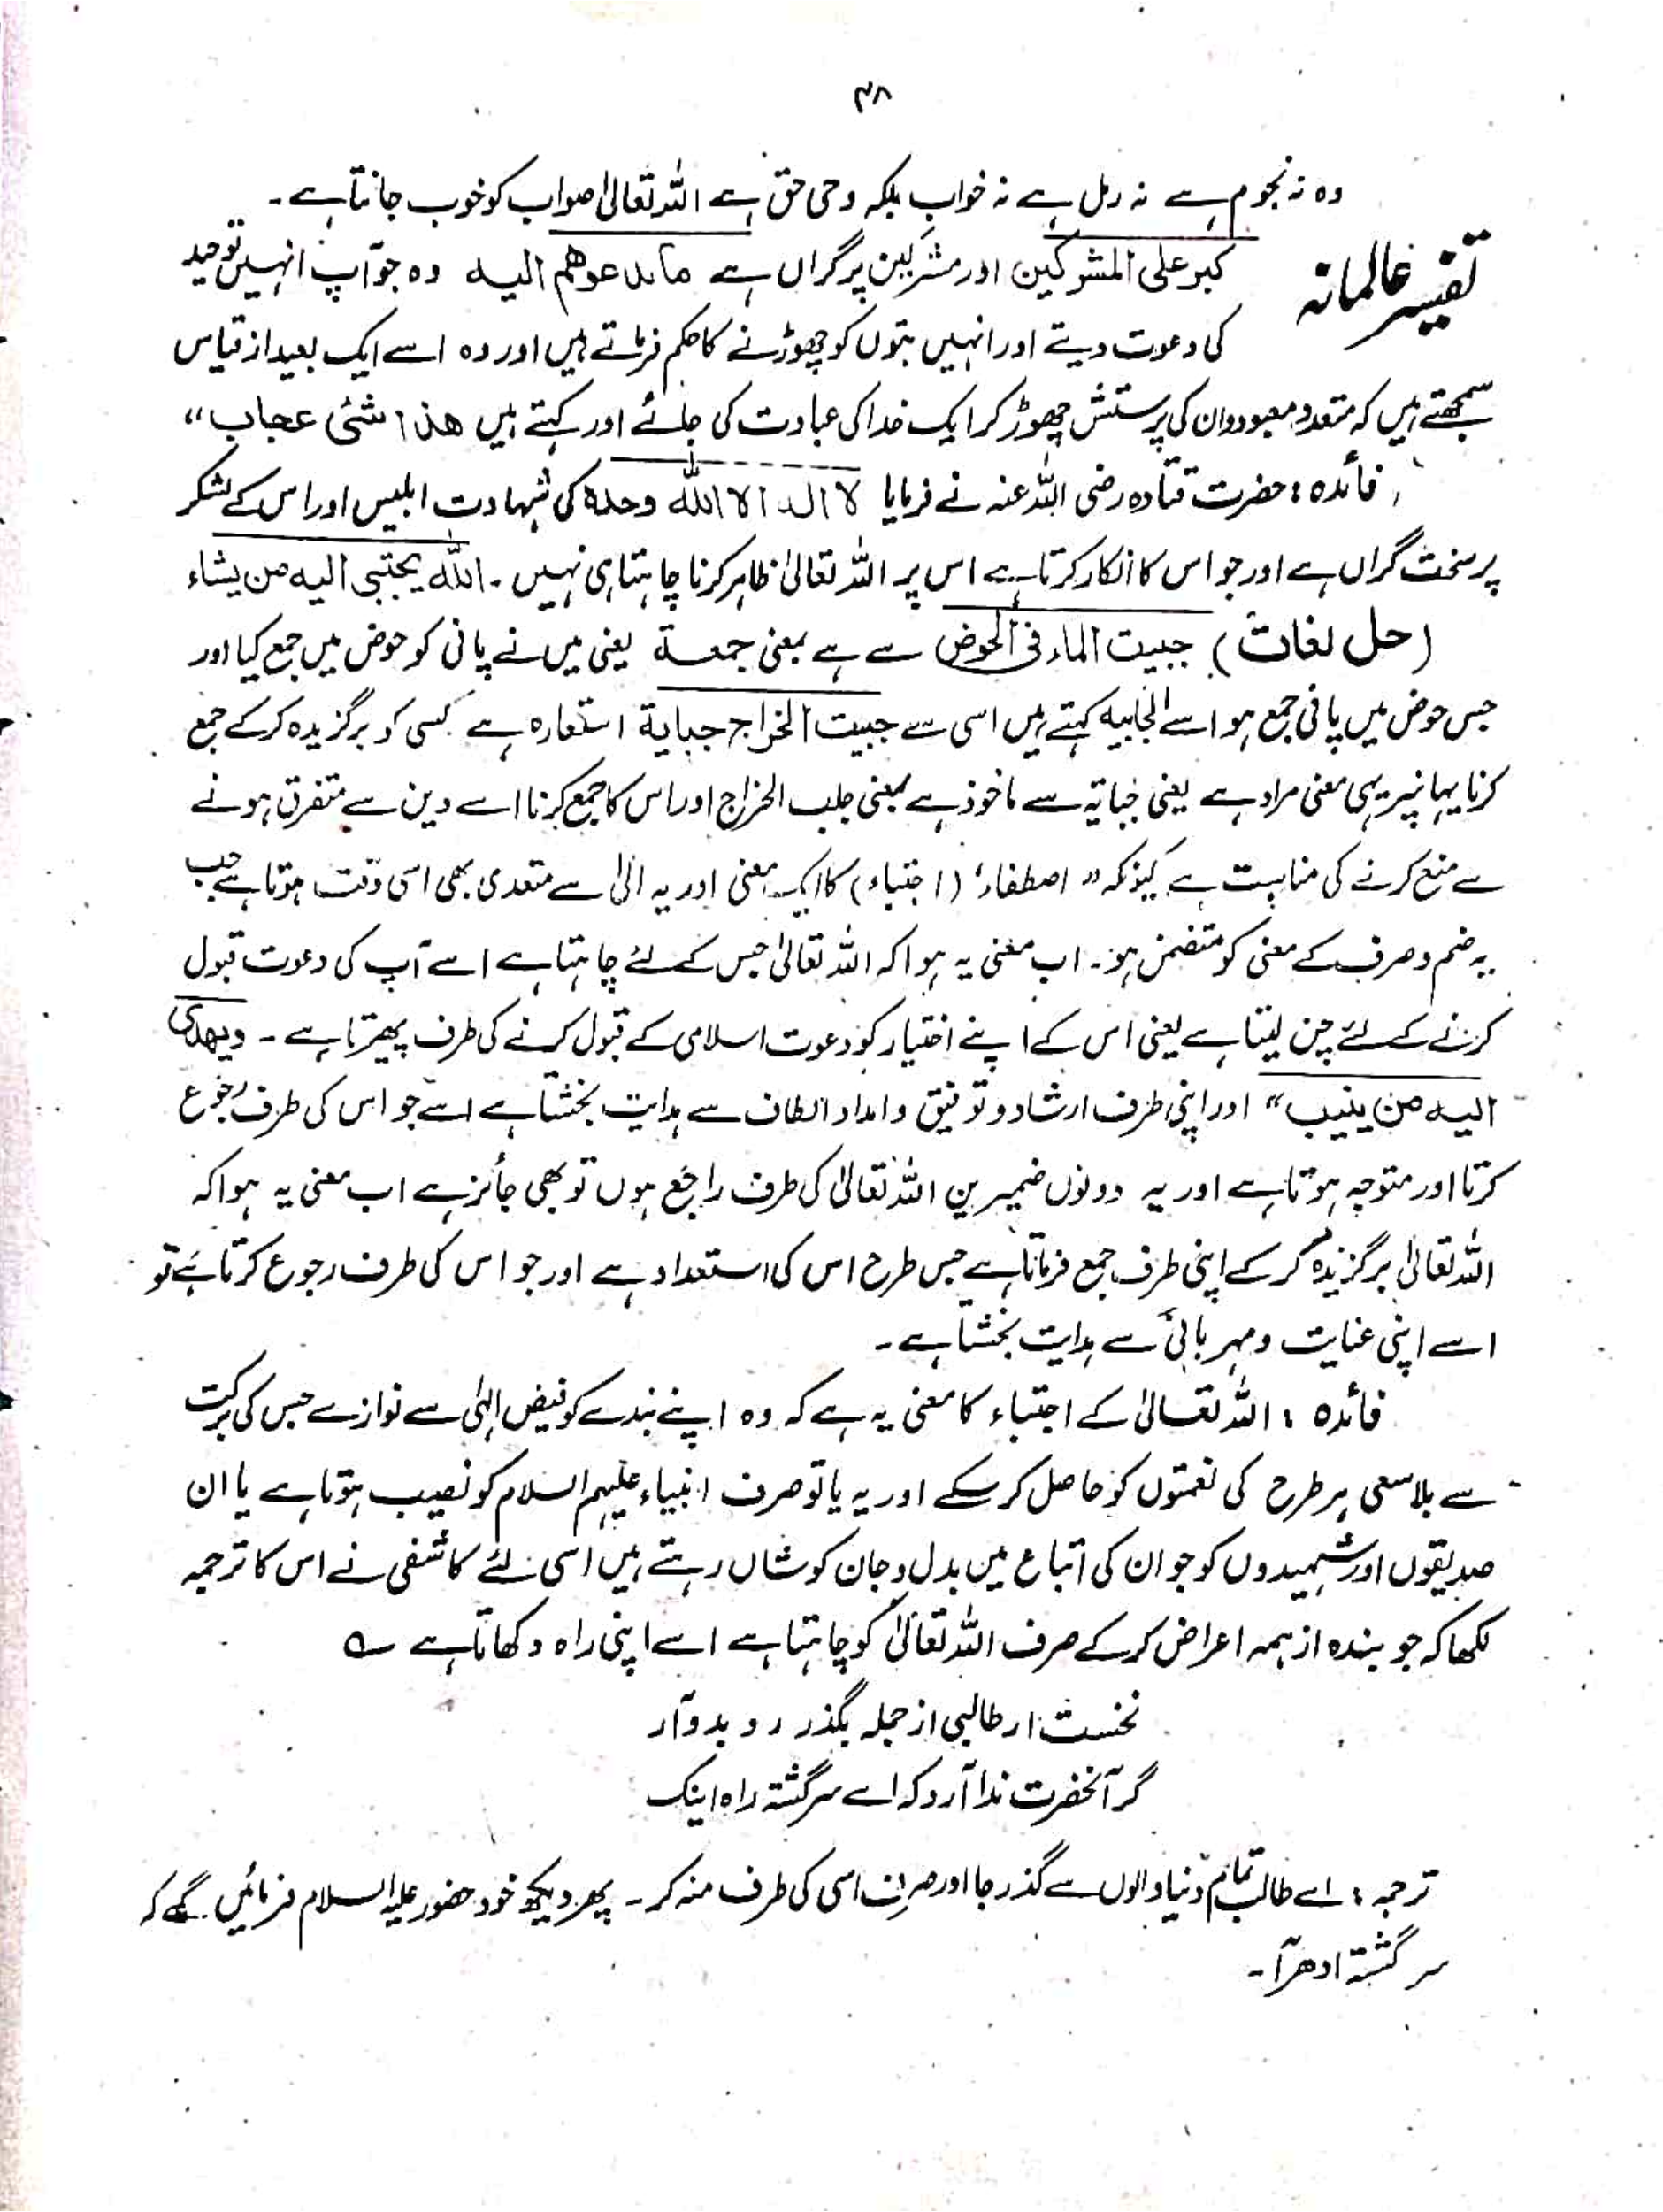 ۳۸
وہ نہ نجوم ہے نہ رمل ہے نہ خواب بلکہ وحی حق ہے اللہ تعالیٰ صواب کو خوب جانتا ہے۔
تفسیر عالمانہ
کبر علی المشرکین اور مشرکین پر گراں ہے ما تدعوھم الیہ وہ جو آپ انہیں توحید
کی دعوت دیتے اور انہیں بتوں کو چھوڑنے کا حکم فرماتے ہیں اور وہ اسے ایک بعید از قیاس
سمجھتے ہیں کہ متعدد معبودوان کی پرستش چھوڑ کر ایک خدا کی عبادت کی جائے اور کہتے ہیں ھذا شئی عجاب"
فائدہ : حضرت قتادہ رضی اللہ عنہ نے فرمایا لا الہ الا اللہ وحدہ کی شہادت ابلیس اور اس کے لشکر
پر سخت گراں ہے اور جو اس کا انکار کرتا ہے اس پر اللہ تعالیٰ ظاہر کرنا چاہتا ہی نہیں ۔ اللہ یجتبی الیہ من یشاء
(حل لغات) جبیت الماء فی الحوض سے ہے بمعنی جمعۃ یعنی میں نے پانی کو حوض میں جمع کیا اور
جس حوض میں پانی جمع ہو اسے الجابیہ کہتے ہیں اسی سے جبیت الخراج جبایۃ استعارہ ہے کسی کو برگزیدہ کر کے جمع
کرنا یہاں پر یہی معنی مراد ہے یعنی جبایۃ سے ماخوذ ہے بمعنی جلب الخراج اور اس کا جمع کرنا اسے دین سے متفرق ہونے
سے منع کرنے کی مناسبت ہے کیونکہ " اصطفاء، (اجتباء) کا ایک معنی اور یہ الیٰ سے متعدی بھی اسی وقت ہوتا ہے جب
یہ ضم و صرف کے معنی کو متضمن ہو۔ اب معنی یہ ہوا کہ اللہ تعالیٰ جس کے لئے چاہتا ہے اسے آپ کی دعوت قبول
کرنے کے لئے چن لیتا ہے یعنی اس کے اپنے اختیار کو دعوت اسلامی کے قبول کرنے کی طرف پھیرتا ہے ۔ ویھدی
الیہ من ینیب" اور اپنی طرف ارشاد و توفیق و امداد الطاف سے ہدایت بخشتا ہے اسے جو اس کی طرف رجوع
کرتا اور متوجہ ہوتا ہے اور یہ دونوں ضمیرین اللہ تعالیٰ کی طرف راجع ہوں تو بھی جائز ہے اب معنی یہ ہوا کہ
اللہ تعالیٰ برگزیدہ کر کے اپنی طرف جمع فرماتا ہے جس طرح اس کی استعداد ہے اور جو اس کی طرف رجوع کرتا ہے تو
اسے اپنی عنایت و مہربانی سے ہدایت بخشتا ہے ۔
فائدہ : اللہ تعالیٰ کے اجتباء کا معنی یہ ہے کہ وہ اپنے بندے کو فیض الٰہی سے نوازے جس کی برکت
سے بلا سعی ہر طرح کی نعمتوں کو حاصل کر سکے اور یہ یا تو صرف انبیاء علیہم السلام کو نصیب ہوتا ہے یا ان
صدیقوں اور شہیدوں کو جو ان کی اتباع میں بدل و جان کوشاں رہتے ہیں اسی لئے کاشفی نے اس کا ترجمہ
لکھا کہ جو بندہ از ہمہ اعراض کر کے صرف اللہ تعالیٰ کو چاہتا ہے اسے اپنی راہ دکھاتا ہے ؎
نخست ار طالبی از جملہ بگذر رو بدو آر
گر آنحضرت ندا آرد کہ اے سرگشتہ راہ اینک
ترجمہ : اے طالب تمام دنیا والوں سے گذر جا اور صرف اسی کی طرف منہ کر ۔ پھر دیکھ خود حضور علیہ السلام فرمائیں گے کہ
سرگشتہ ادھر آ ۔